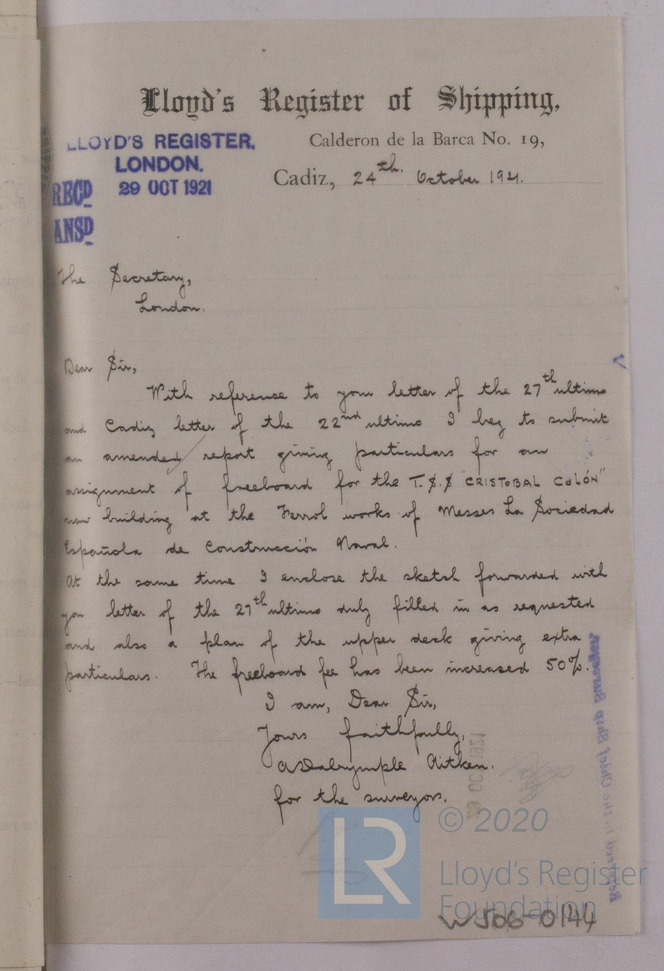 Lloyd's Register of Shipping,
Calderon de la Barca No. 19,
LLOYD'S REGISTER,
LONDON.
29 OCT 1921
RECD
ANSD
Cadiz, 24th. October 1921.
The Secretary,
London.
Dear Sir,
With reference to your letter of the 27th ultimo
and Cadiz letter of the 22nd ultimo I beg to submit
an amended report giving particulars for an
assignment of freeboard for the T.S.S "CRISTOBAL COLÓN"
now building at the Ferrol works of Messrs La Sociedad
Española de Construcción Naval.
At the same time I enclose the sketch forwarded with
your letter of the 27th ultimo duly filled in as requested
and also a plan of the upper deck giving extra
particulars. The freeboard fee has been increased 50%.
I am, Dear Sir,
Yours faithfully,
Dalrymple Aitken.
for the surveyors.
Referred to the Chief Ship Surveyor
OCT 1921
LR
© 2020
Lloyd's Register
Foundation
W506-0144